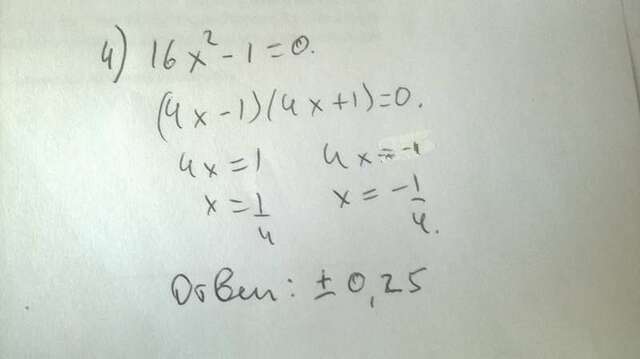 4) 16x² - 1 = 0.
(4x - 1)(4x + 1) = 0.
4x = 1 4x = -1
x = 1/4 x = -1/4.
Ответ: ± 0,25